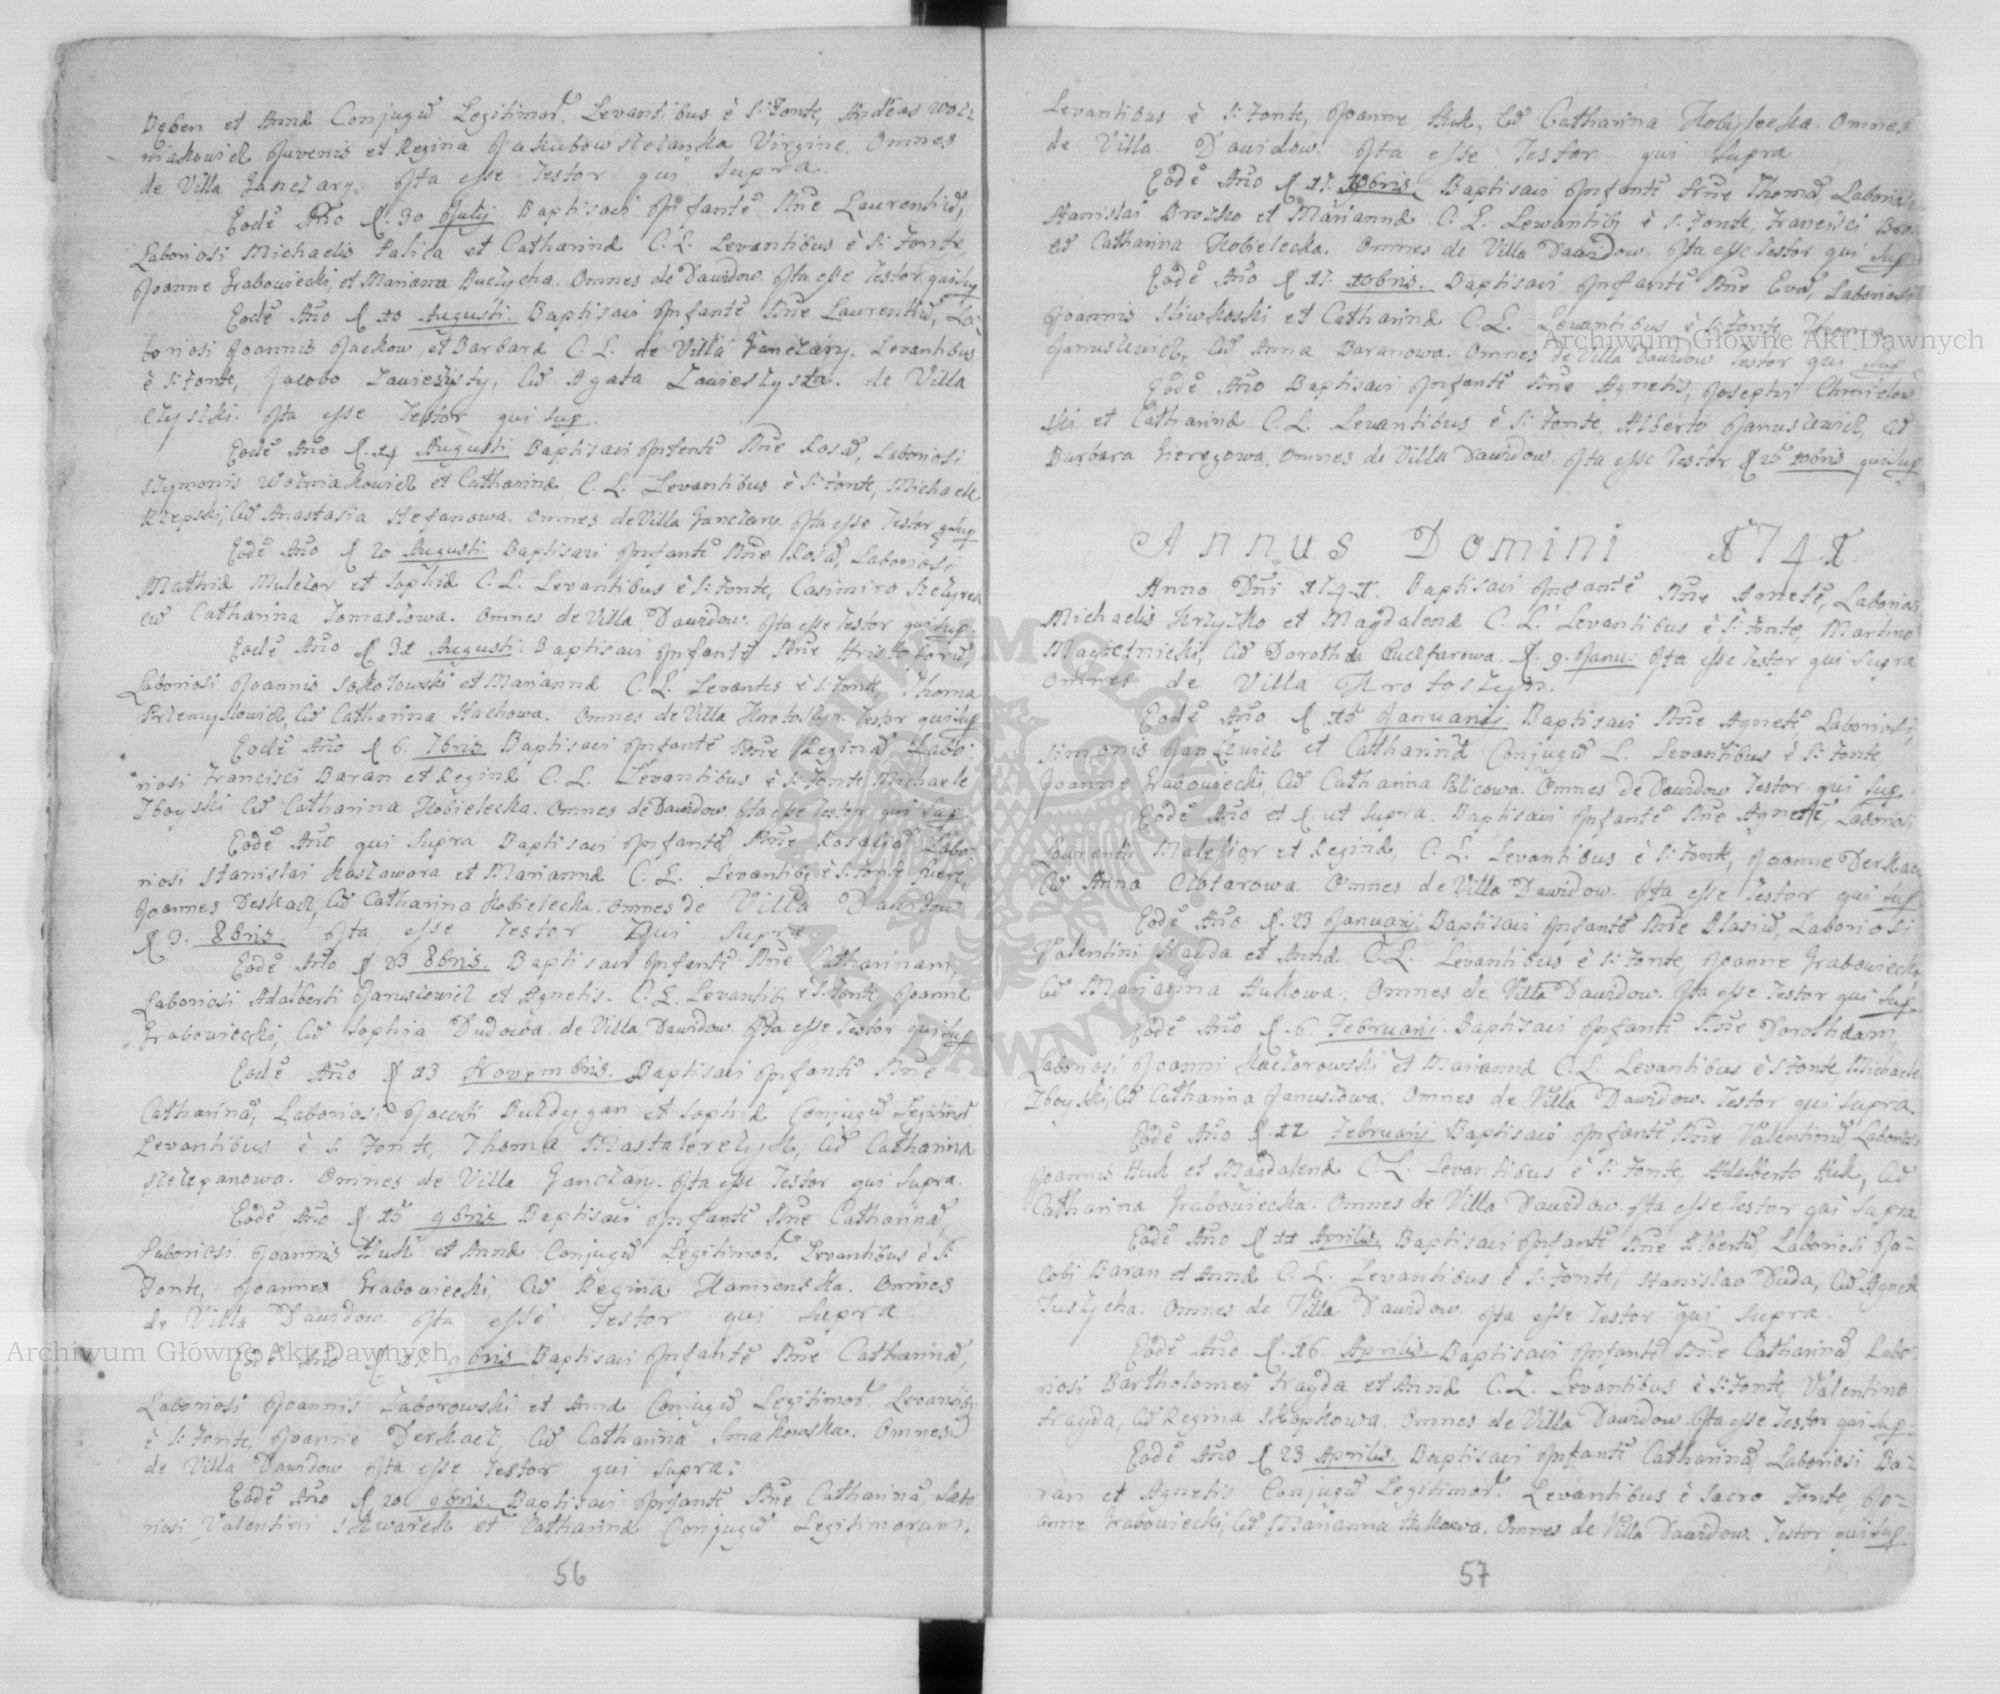 Dęben et Annæ Conjugū Legitimor. Levantibus è S. Fonte, Andreas Woź
niakowicz Juvenis et Regina Jakubowszczanka Virgine. Omnes
de Villa Ganczary. Ita esse Testor qui Supra.
Eodē Año d. 30 Julij Baptisavi Infantē Nōie Laurentiū,
Laboriosi Michaelis Palica et Catharinæ C. L. Levantibus è S. Fonte,
Joanne Grabowiecki, et Marianna Huczycha. Omnes de Dawidow. Ita esse Testor qui sup
Eodē Año d 10 Augusti. Baptisavi Infantē Nōie Laurentiū, La-
boriosi Joannis Jackow, et Barbaræ C. L. de Villa Ganczary. Levantibus
è S. Fonte, Jacobo Zawieszysty, cū Agata Zawieszysta. de Villa
Czyszki. Ita esse Testor qui sup.
Eodē Año d. 14 Augusti Baptisavi Infantē Nōie Rosā, Laboriosi
Szymonis Wozniakowicz et Catharinæ C. L. Levantibus è S. Fonte, Michaele
Rzepski, cū Anastasia Stefanowa. Omnes de Villa Ganczary. Ita esse Testor q sup
Eodē Año d 20 Augusti. Baptisavi Infantē Nōie Rosā, Laboriosi
Mathiæ Mulczor et Sophiæ C. L. Levantibus è S. Fonte, Casimiro
cū Catharina Tomaszowa. Omnes de Villa Dawidow. Ita esse Testor qui sup.
Eodē Año d 31 Augusti. Baptisavi Infantē Nōie Kristoforū
Laboriosi Joannis Sokołowski et Mariannæ C. L. Levantes è S. Fonte Thoma
Przemysłowicz, cū Catharina Stachowa. Omnes de Villa Krotoszyn. Testor qui sup
Eodē Año d 6. 7bris Baptisavi Infantē Nōie Reginā Labo-
riosi Francisci Baran et Reginæ C. L. Levantibus è S. Fonte Michaele
Zboyski cū Catharina Kobielecka. Omnes de Dawidow. Ita esse Testor qui sup.
Eodē Año qui Supra Baptisavi Infantē Nōie Rosaliā Labo-
riosi Stanislai Koszawara et Mariannæ C. L. Levantib9 è S. Fonte fuere,
Joannes Derkacz, cū Catharina Kobielecka. Omnes de Villa Dawidow
d 3. 8bris. Ita esse Testor Qui Supra
Eodē Año d 23 8bris. Baptisavi Infantē Nōie Catharinam
Laboriosi Adalberti Januszowicz et Agnetis. C. L. Levantib9 è S. Fonte Joanne
Grabowiecki, cū Sophia Dudowa. de Villa Dawidow. Ita esse Testor qui sup
Eodē Año d 13 Novembris. Baptisavi Infantē Nōie
Catharinā, Laboriosi Jacobi Buldygan et Sophiæ Conjugū Legitimor
Levantibus è S. Fonte, Thoma Mastalerczyk, cū Catharina
Szczepanowa. Omnes de Villa Ganczary. Ita esse Testor qui Supra.
Eodē Año d. 15 9bris Baptisavi Infantē Nōie Catharinā,
Laboriosi Joannis Huk et Annæ Conjugū Legitimor. Levantibus è S.
Fonte, Joannes Grabowiecki, cū Regina Kamienska. Omnes
de Villa Dawidow. Ita esse Testor qui Supra
Eodē Año d 9bris Baptisavi Infantē Nōie Catharinā,
Laboriosi Joannis Zaborowski et Annæ Conjugū Legitimor. Levantib9
è S. Fonte, Joanne Derkacz, cū Catharina Smakowska. Omnes
de Villa Dawidow Ita esse Testor qui Supra.
Eodē Año d 20 9bris. Baptisavi Infantē Nōie Catharinā, Labo
riosi Valentini Skwarek et Catharinæ Conjugū Legitimorum.
56
Levantibus è S. Fonte, Joanne Huk, cū Catharina Kobylecka. Omnes
de Villa Dawidow. Ita esse Testor qui Supra
Eodē Año d 17. 10bris Baptisavi Infantē Nōie Thomā, Laboriosi
Stanislai Brozko et Mariannæ C. L. Lewantib9 è S. Fonte, Francisci
cū Catharina Kobielecka. Omnes de Villa Dawidow. Ita esse Testor qui sup
Eodē Año d 17. 10bris. Baptisavi Infantē Nōie Evā, Laboriosi
Joannis Sliwkoski et Catharinæ C. L. Levantibus è S. Fonte Thoma
Januszwicz, cū Anna Baranowa. Omnes de Villa Dawidow Testor qui sup
Eodē Año Baptisavi Infantē Nōie Agnetis, Josephi Chmielow
ski et Catharinæ C. L. Levantibus è S. Fonte, Alberto Januszwicz, cū
Barbara Gieregowa. Omnes de Villa Dawidow. Ita esse Testor d 25 10bris qui sup
Annus Domini 1741.
Anno Dñi 1741. Baptisavi Infantē Nōie Agnetē, Laboriosi
Michaelis Krzyżko et Magdalenæ C. L. Levantibus è S. Fonte, Martino
Maciesnicki, cū Dorothea Cuczfarowa. d. 9. Janu: Ita esse Testor qui Supra
Omnes de Villa Krotoszyn.
Eodē Año d 15 Januarij Baptisavi Nōie Agnetē, Laboriosi,
Simonis Jankiewicz et Catharinæ Conjugū L. Levantibus è S. Fonte,
Joanne Grabowiecki, cū Catharina Blicowa. Omnes de Dawidow Testor qui sup
Eodē Año et d. ut Supra. Baptisavi Infantē Nōie Agnetē, Laboriosi
Laurentii Malessior et Reginæ, C. L. Levantibus è S. Fonte, Joanne Derkacz
cū Anna Clotarowa. Omnes de Villa Dawidow. Ita esse Testor qui sup
Eodē Año d. 23 Januarij Baptisavi Infantē Nōie Blasiū, Laboriosi
Valentini Frayda et Annæ C. L. Levantibus è S. Fonte, Joanne Grabowiecki
cū Marianna Hukowa. Omnes de Villa Dawidow. Ita esse Testor qui sup
Eodē Año d. 6. Februarij. Baptisavi Infantē Nōie Dorotheam,
Laboriosi Joanni Kaczorowski et Mariannæ C. L. Levantibus è S. Fonte, Michaele
Zboyski, cū Catharina Januszowa. Omnes de Villa Dawidow. Testor qui Supra.
Eodē Año d. 12 Februarij Baptisavi Infantē Nōie Valentinū Laboriosi
Joannis Huk et Magdalenæ C. L. Levantibus è S. Fonte, Adalberto Huk, cū
Catharina Grabowiecka. Omnes de Villa Dawidow. Ita esse Testor qui Supra
Eodē Año d 11 Aprilis. Baptisavi Infantē Nōie Albertū, Laboriosi Ja-
cobi Baran et Annæ C. L. Levantibus è S. Fonte, Stanislao Duda, cū Agnete
Juszycha. Omnes de Villa Dawidow. Ita esse Testor qui Supra.
Eodē Año d. 16. Aprilis. Baptisavi Infantē Nōie Catharinā Labo-
riosi Bartholomei Frayda et Annæ C. L. Levantibus è S. Fonte, Valentino
Frayda, cū Regina Skopkowa. Omnes de Villa Dawidow Ita esse Testor qui sup
Eodē Año d 23 Aprilis. Baptisavi Infantē Catharinā Laboriosi Ba-
ran et Agnetis Conjugū Legitimor. Levantibus è Sacro Fonte, Jo-
anne Grabowiecki, cū Marianna Hukowa. Omnes de Villa Dawidow. Testor qui sup
57
Archiwum Główne Akt Dawnych
Archiwum Główne Akt Dawnych
ARCHIWUM GŁÓWNE AKT DAWNYCH